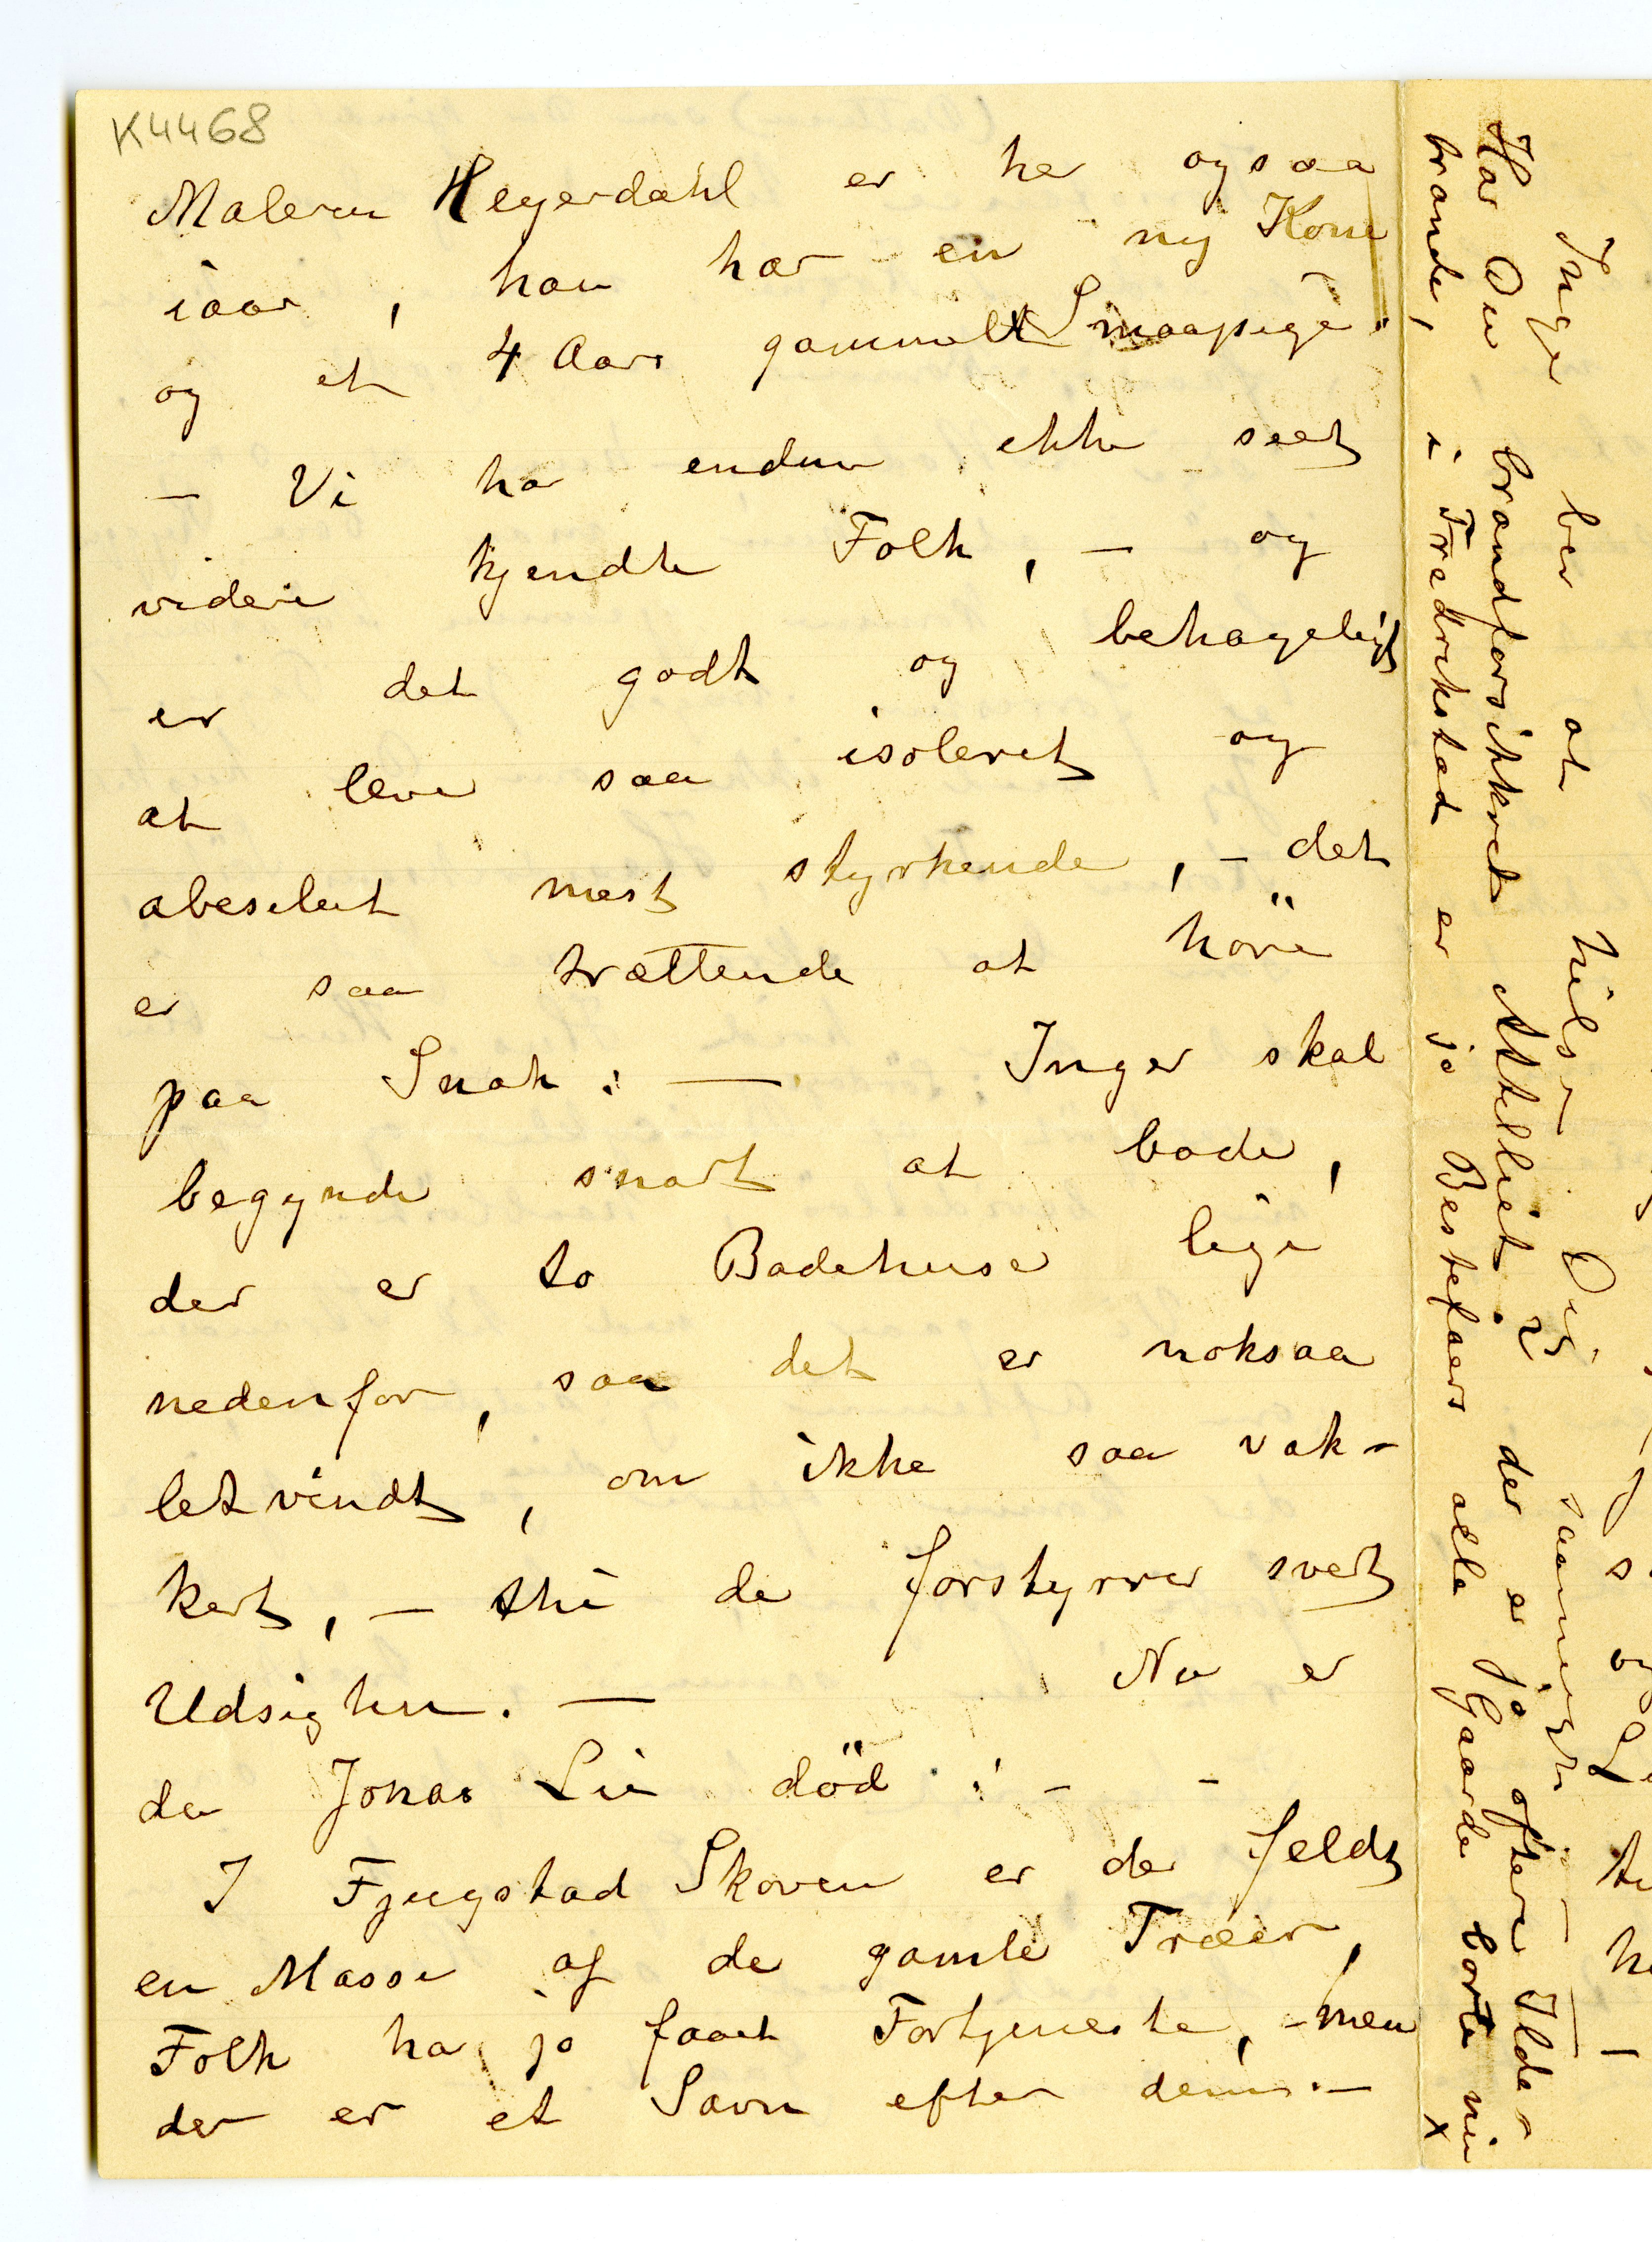 K4468
Maleren Heyerdahl er her ogsaa
iaar, han har en ny Kone
og et 4 Aars gammelt Smaapige.
– Vi ha endnu ikke seet
videre kjendte Folk, – og
er det godt og behageligt
at leve saa isoleret og
abeselut mest styrkende, – det
er saa trættende at höre
paa Snak: — Inger skal
begynde snart at bade,
der er to Badehuse lige
nedenfor, saa det er noksaa
letvindt, om ikke saa vak-
kert, – thi de forstyrrer svert
Udsigten. — Nu er
da Jonas Lie död: – –
I Fjugstad Skoven er der feldt
en Masse af de gamle Træer,
Folk ha jo faaet Fortjeneste, – men
der er et Savn efter dem. –
Inger ber at hilse Dig saameget
Har Du brandforsikkret Atelliet? der er jo oftere Ilde-
brande, i Fredrikstad er jo Bestefaers alle Gaarde borte nu x